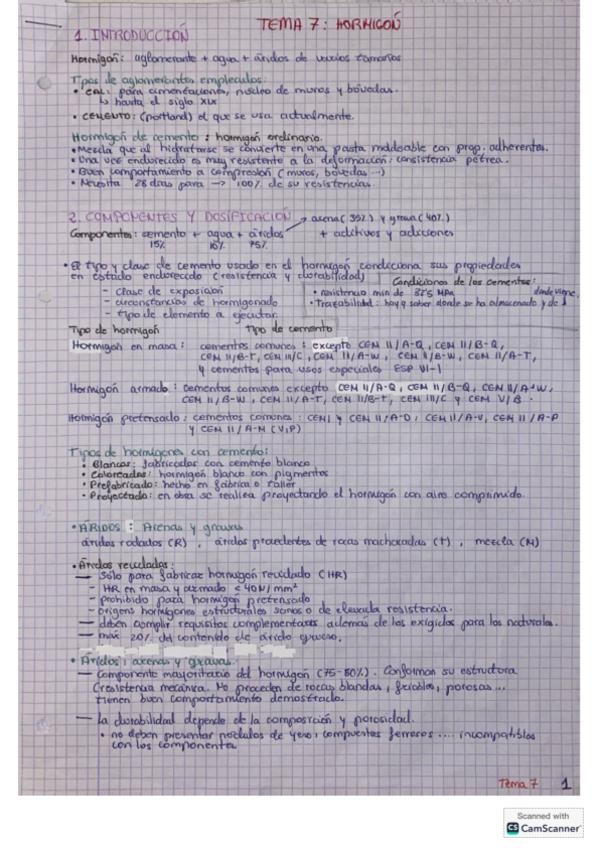 TEMA 7: HORMIGÓN
1. INTRODUCCIÓN
Hormigón: aglomerante + agua + áridos de varios tamaños
Tipos de aglomerantes empleados:
• CAL: para cimentaciones, núcleo de muros y bóvedas.
↳ hasta el siglo XIX
• CEMENTO: (portland) el que se usa actualmente.
Hormigón de cemento: hormigón ordinario.
• Mezcla que al hidratarse se convierte en una pasta moldeable con prop. adherentes.
• Una vez endurecido es muy resistente a la deformación: consistencia pétrea.
• Buen comportamiento a compresión (muros, bóvedas ...)
• Necesita 28 días para → 100% de su resistencia.
2. COMPONENTES Y DOSIFICACIÓN
→ arena (35%) y grava (40%)
Componentes: cemento + agua + áridos + aditivos y adiciones
15% 10% 75%
• El tipo y clase de cemento usado en el hormigón condiciona sus propiedades
en estado endurecido (resistencia y durabilidad)
– Clase de exposición
– circunstancias de hormigonado
– tipo de elemento a ejecutar
Condiciones de los cementos:
• resistencia min de 32'5 MPa
• Trazabilidad: hay q saber donde se ha almacenado y de donde viene.
Tipo de hormigón Tipo de cemento
Hormigón en masa: cementos comunes: excepto CEM II/A-Q, CEM II/B-Q,
CEM II/B-T, CEM III/C, CEM II/A-W, CEM II/B-W, CEM II/A-T,
y cementos para usos especiales ESP VI-1
Hormigón armado: cementos comunes excepto CEM II/A-Q, CEM II/B-Q, CEM II/A-W,
CEM II/B-W, CEM II/A-T, CEM II/B-T, CEM III/C y CEM V/B.
Hormigón pretensado: cementos comunes: CEM I y CEM II/A-D, CEM II/A-V, CEM II/A-P
y CEM II/A-M (V,P)
Tipos de hormigones con cemento:
• Blancos: fabricados con cemento blanco
• Coloreados: hormigón blanco con pigmentos
• Prefabricado: hecho en fábrica o taller
• Proyectado: en obra se realiza proyectando el hormigón con aire comprimido.
• ÁRIDOS: Arenas y gravas
áridos rodados (R), áridos procedentes de rocas machacadas (T), mezcla (M)
• Áridos reciclados:
— Sólo para fabricar hormigón reciclado (HR)
– HR en masa y armado < 40N/mm²
– prohibido para hormigón pretensado
– origen: hormigones estructurales sanos o de elevada resistencia.
— deben cumplir requisitos complementarios además de los exigidos para los naturales.
— máx 20% del contenido de árido grueso.
• Áridos: arenas y gravas.
— Componente mayoritario del hormigón (75-80%). Conforman su estructura
(resistencia mecánica. No proceden de rocas blandas, friables, porosas...
tienen buen comportamiento demostrado.
— la durabilidad depende de la composición y porosidad.
• no deben presentar nódulos de yeso, compuestos ferrosos .... incompatibles
con los componentes
Tema 7 1
Scanned with
CS CamScanner